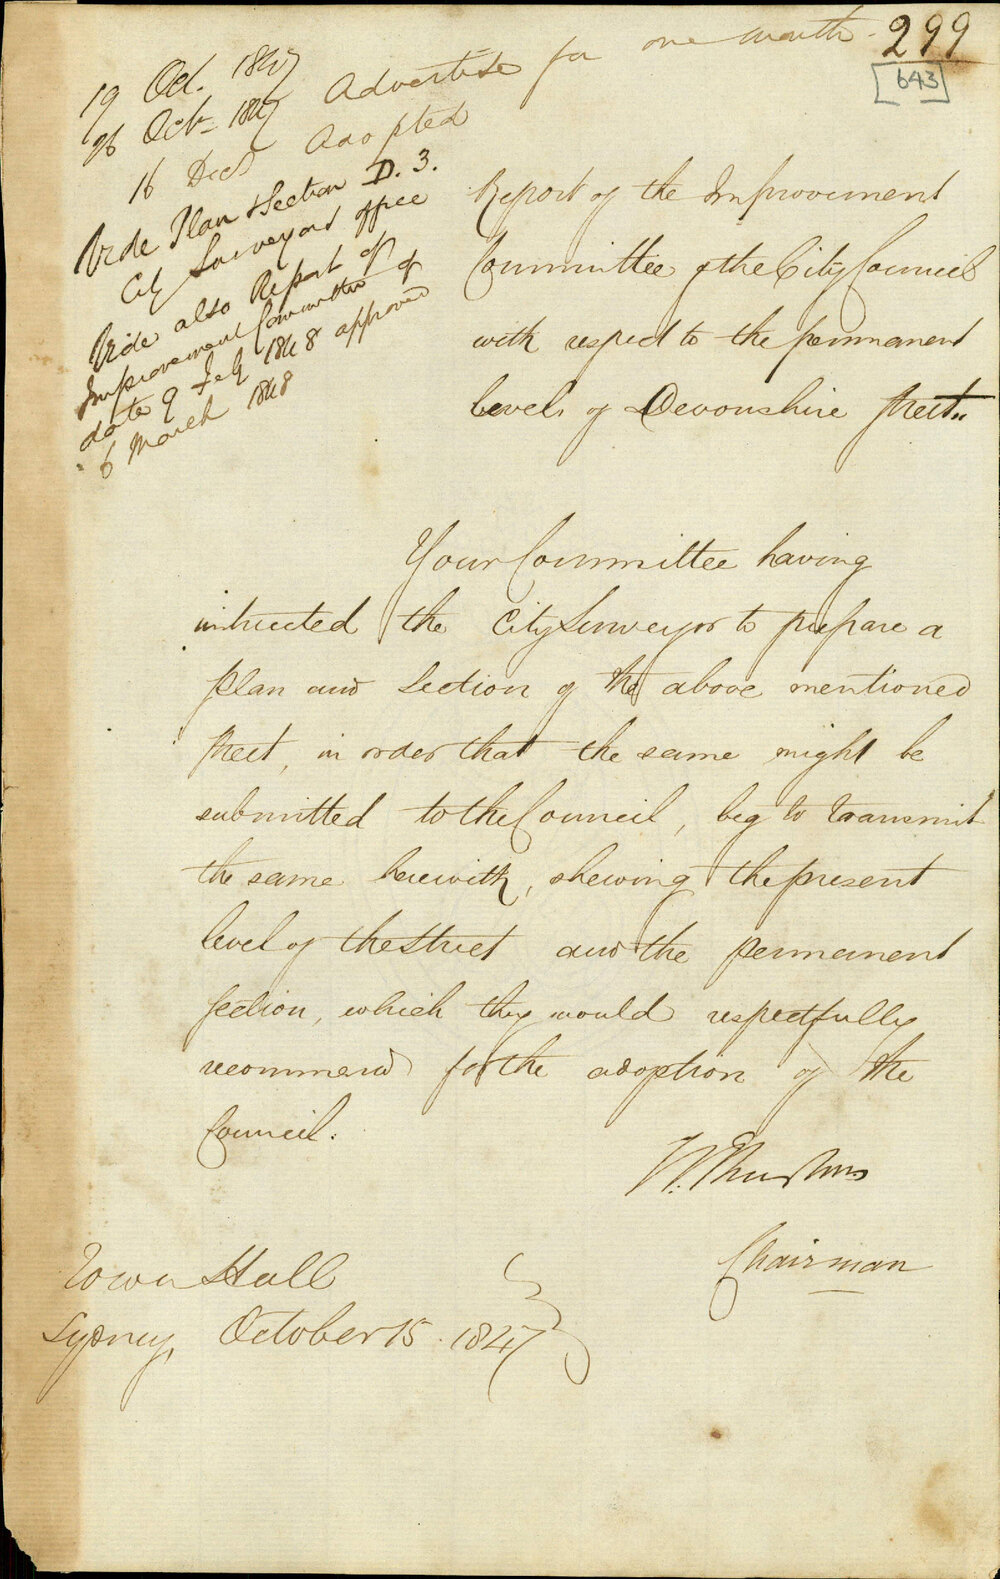 299
[643]
19 Oct. 1847
26 Octr 1847 Advertise for one month.
16 Decr Adopted
Vide Plan & Section D. 3.
City Surveyors office
Vide also Report of
Improvement Committee of
date 9 Feby 1848 approved
6 March 1848
Report of the Improvement
Committee of the City Council
with respect to the permanent
levels of Devonshire Street
Your Committee having
instructed the City Surveyor to prepare a
plan and section of the above mentioned
Street, in order that the same might be
submitted to the Council, beg to transmit
the same herewith, shewing the present
level of the Street and the permanent
section, which they would respectfully
recommend for the adoption of the
Council.
Chairman
Town Hall
Sydney, October 15. 1847